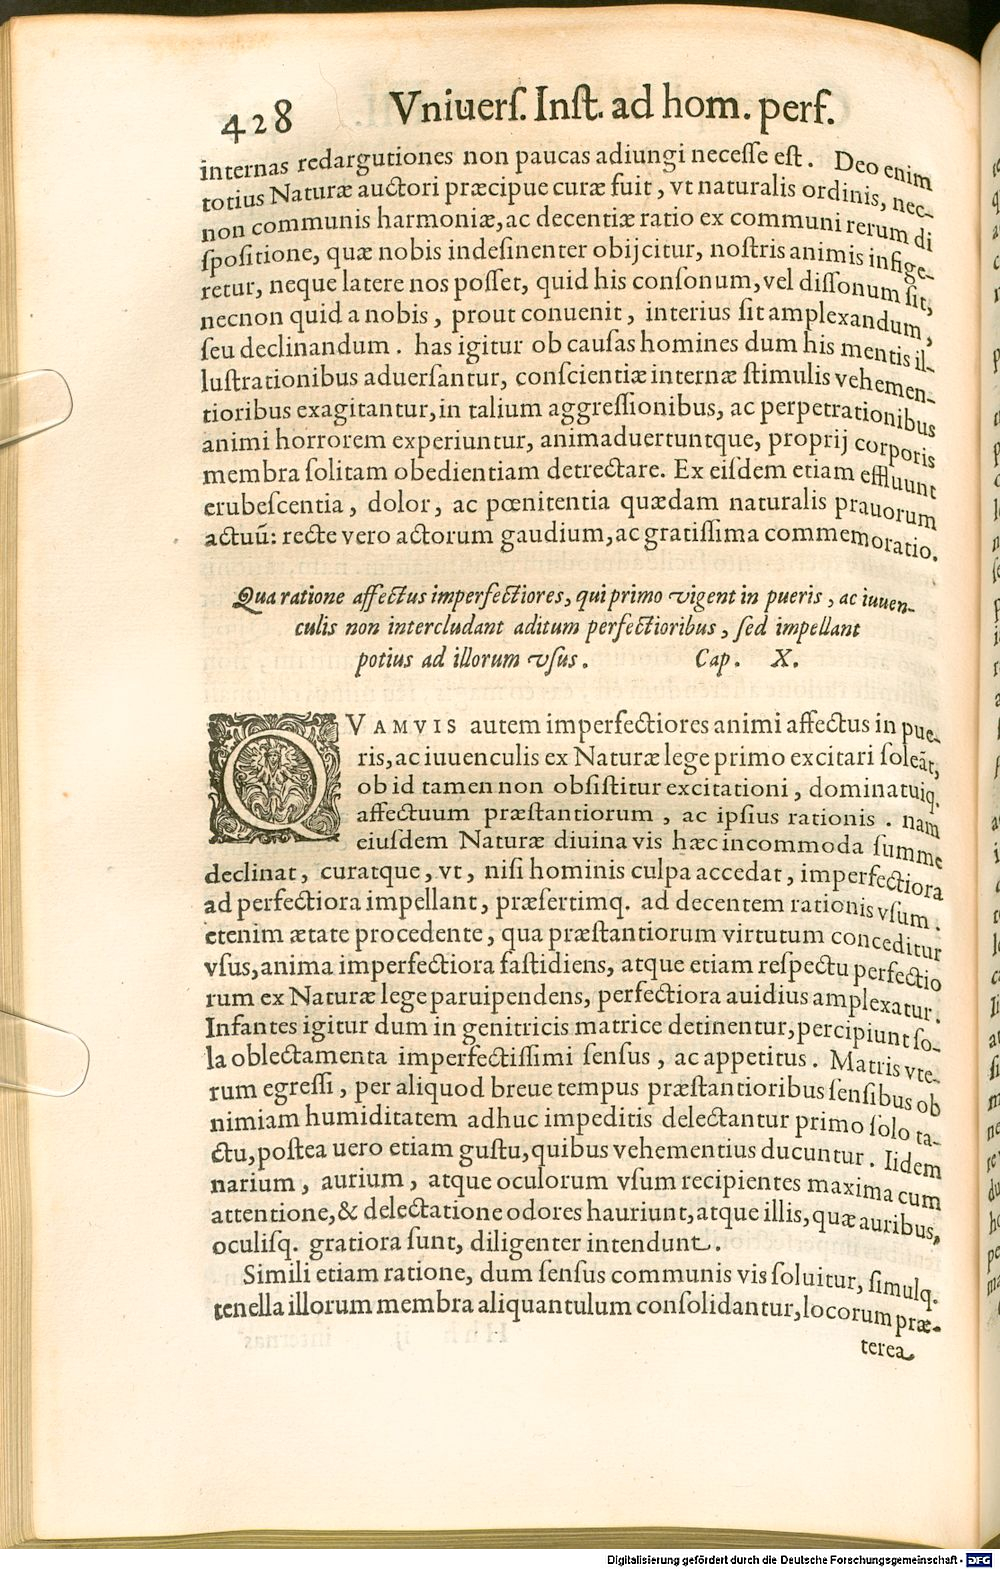 428 Vniuerſ. Inſt. ad hom. perf.
internas redargutiones non paucas adiungi neceſſe eſt. Deo enim
totius Naturæ auctori præcipue curæ fuit, vt naturalis ordinis, nec-
non communis harmoniæ, ac decentiæ ratio ex communi rerum di
ſpoſitione, quæ nobis indeſinenter obijcitur, noſtris animis infige-
retur, neque latere nos poſſet, quid his conſonum, vel diſſonum ſit,
necnon quid a nobis, prout conuenit, interius ſit amplexandum,
ſeu declinandum. has igitur ob cauſas homines dum his mentis il-
luſtrationibus aduerſantur, conſcientiæ internæ ſtimulis vehemen-
tioribus exagitantur, in talium aggreſſionibus, ac perpetrationibus
animi horrorem experiuntur, animaduertuntque, proprij corporis
membra ſolitam obedientiam detrectare. Ex eiſdem etiam effluunt
erubeſcentia, dolor, ac pœnitentia quædam naturalis prauorum
actuū: recte vero actorum gaudium, ac gratiſſima commemoratio.
Qua ratione affectus imperfectiores, qui primo vigent in pueris, ac iuuen-
culis non intercludant aditum perfectioribus, ſed impellant
potius ad illorum vſus. Cap. X.
QVAMVIS autem imperfectiores animi affectus in pue-
ris, ac iuuenculis ex Naturæ lege primo excitari ſoleāt,
ob id tamen non obſiſtitur excitationi, dominatuiq.
affectuum præſtantiorum, ac ipſius rationis. nam
eiuſdem Naturæ diuina vis hæc incommoda ſumme
declinat, curatque, vt, niſi hominis culpa accedat, imperfectiora
ad perfectiora impellant, præſertimq. ad decentem rationis vſum.
etenim ætate procedente, qua præſtantiorum virtutum conceditur
vſus, anima imperfectiora faſtidiens, atque etiam reſpectu perfectio
rum ex Naturæ lege paruipendens, perfectiora auidius amplexatur.
Infantes igitur dum in genitricis matrice detinentur, percipiunt ſo-
la oblectamenta imperfectiſſimi ſenſus, ac appetitus. Matris vte-
rum egreſſi, per aliquod breue tempus præſtantioribus ſenſibus ob
nimiam humiditatem adhuc impeditis delectantur primo ſolo ta-
ctu, poſtea uero etiam guſtu, quibus vehementius ducuntur. Iidem
narium, aurium, atque oculorum vſum recipientes maxima cum
attentione, & delectatione odores hauriunt, atque illis, quæ auribus,
oculiſq. gratiora ſunt, diligenter intendunt.
Simili etiam ratione, dum ſenſus communis vis ſoluitur, ſimulq.
tenella illorum membra aliquantulum conſolidantur, locorum præ-
terea
Digitalisierung gefördert durch die Deutsche Forschungsgemeinschaft - DFG